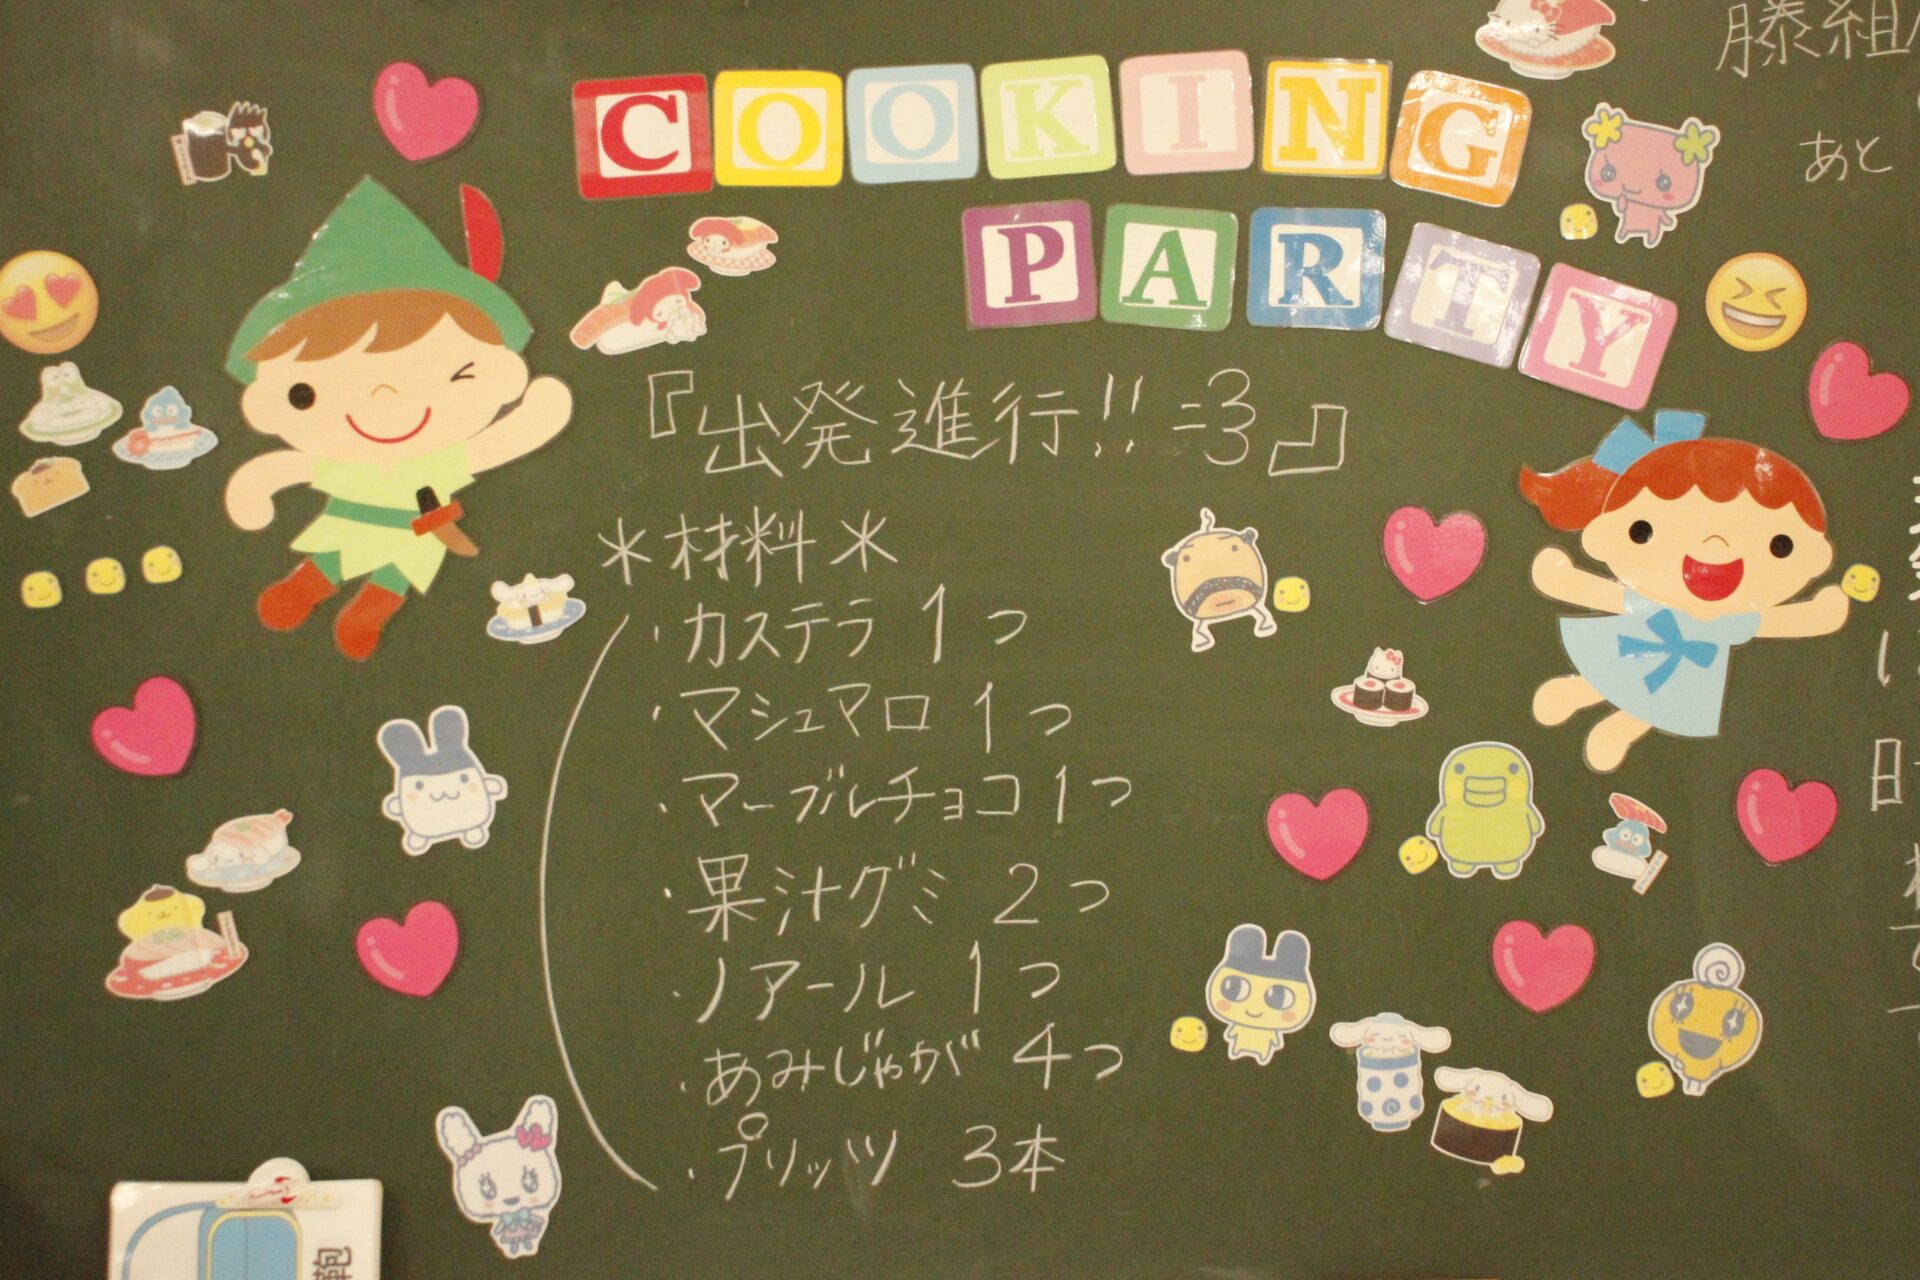 COOKING
PARTY
『出発進行!!=3』
＊材料＊
・カステラ 1つ
・マシュマロ 1つ
・マーブルチョコ 1つ
・果汁グミ 2つ
・ノアール 1つ
・あみじゃが 4つ
・プリッツ 3本
藤組
あと
鞄